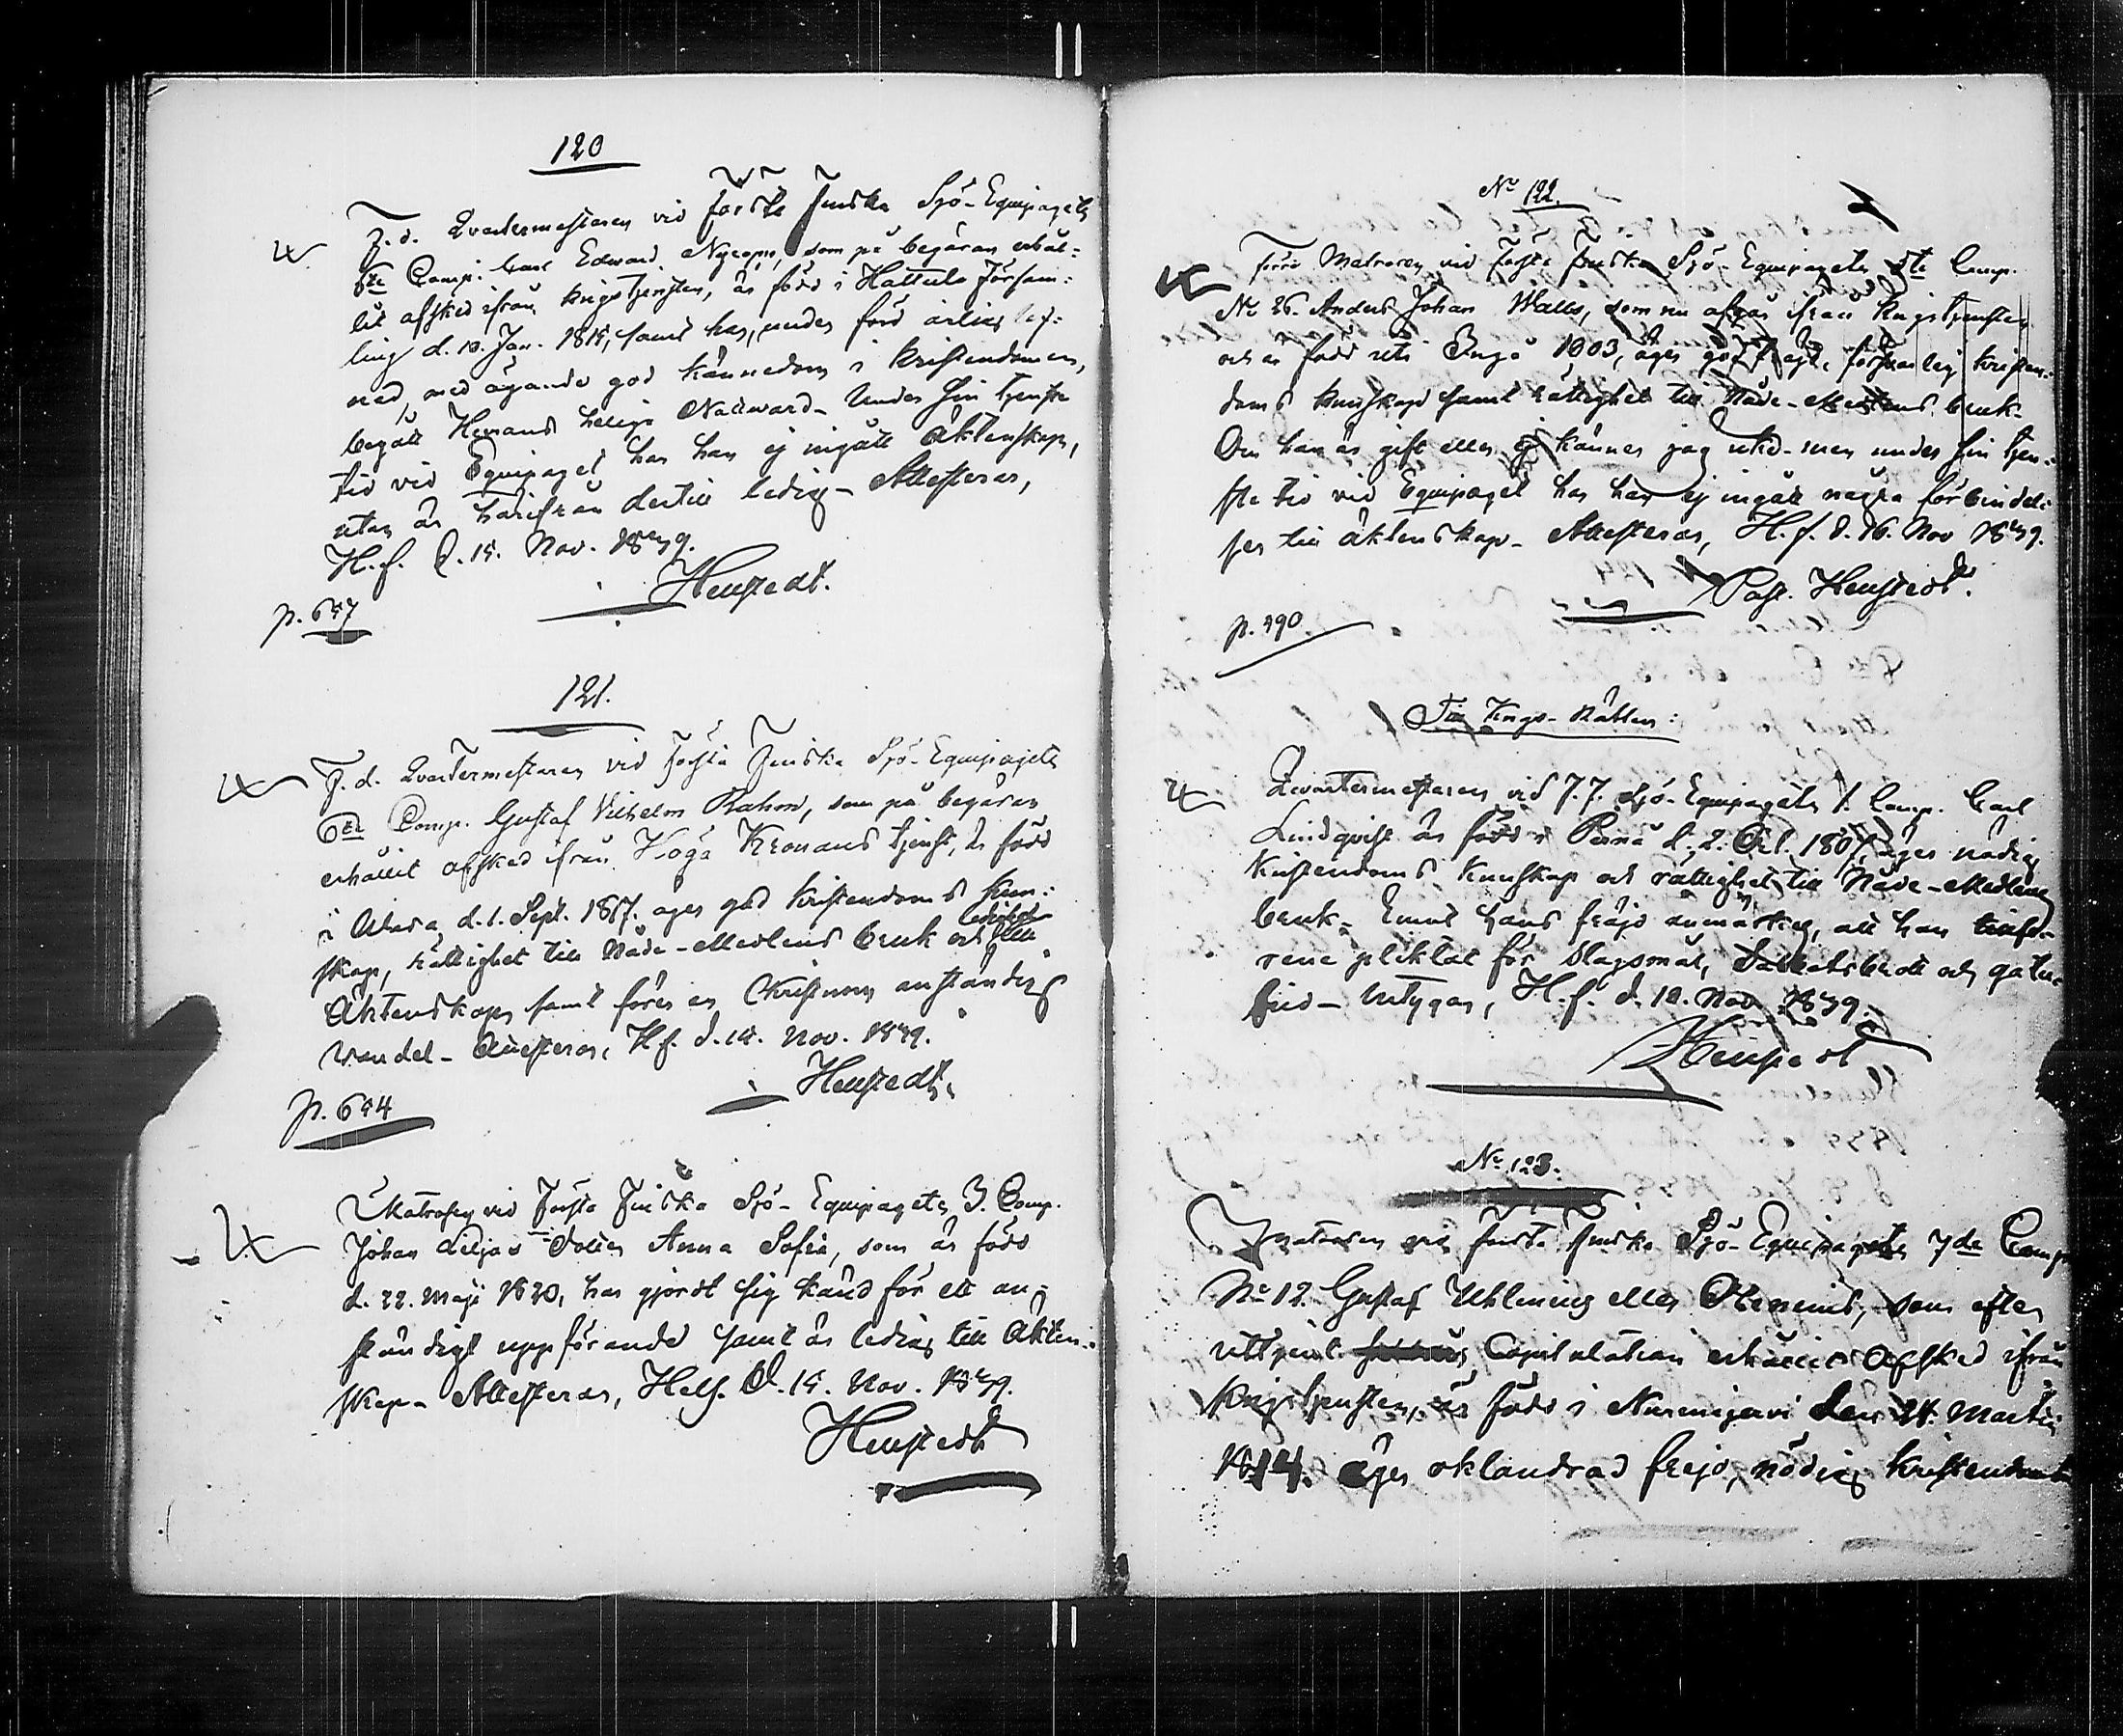 120
F. d. Quartermästaren vid Första Finska Sjö-Equipagets
6te Comp. Carl Edward Nycopp, som på begäran erhål-
lit afsked ifrån krigstjensten, är född i Hattula Försam-
ling d. 10. Jan. 1815, samt har, under förd ärlig lef-
nad, med ägande god kännedom i Kristendomen,
begått Herrans heliga Nattward - Under sin tjenste
tid vid Equipaget har han ej ingått Äktenskap,
utan är härifrån dertill ledig - Attesteras,
H.f. d. 15. Nov. 1839.
Henstedt.
p. 647
121.
F. d. Quartermästaren vid Första Finska Sjö-Equipagets
6te Comp. Gustaf Vilhelm Rahm, som på begäran
erhållit afsked ifrån Höga Kronans tjenst, är född
i d. 1. Sept. 1817. äger god Kristendoms kun-
skap, rättighet till Nåde-Medlens bruk och ledighet till
Äktenskap samt förer en Christnom anständig
vandel - Attesteras, H.f. d. 15. Nov. 1839.
Henstedt.
p. 644
Matrosen vid Första Finska Sjö-Equipagets 3. Comp.
Johan Liljas Dotter Anna Sofia, som är född
d. 22. Maji 1820, har gjordt sig känd för ett an-
ständigt uppförande samt är ledig till Äkten-
skap - Attesteras, Helf. d. 15. Nov. 1839.
Henstedt
No 122.
Förre Matrosen vid Första Finska Sjö-Equipagets 5te Comp.
No 26. Anders Johan Walls, som nu afgår ifrån krigstjensten
och är född uti Ingå 1803, äger godt förswarlig kristen-
doms kunskap samt rättighet till Nåde-Medlens bruk -
Om han är gift eller ej känner jag icke - men under sin tjen-
ste tid vid Equipaget har han ej ingått några förbindel-
ser till äktenskap - Attesteras, H.f. d. 16. Nov 1839.
Past. Henstedt.
p. 390
Till Krigs-Rätten:
Quartermästaren vid F.F. Sjö-Equipagets 1. Comp. Carl
Lindqvist är född i Pernå d. 2. Oct. 1807, äger nödig
Kristendoms Kunskap och rättighet till Nåde-Medlens
bruk - Emot hans fräjd anmärkes, att han tinfö-
rene pliktat för slagsmål, Sabbatsbrott och gatu-
frid - Intygar, H.f. d. 18. Nov 1839.
Henstedt
No 123.
Matrosen vid Första Finska Sjö-Equipagets 7de Comp
No 12. Gustaf Uhlenius eller Olenius, som efter
uttjent Capitulation erhållit Afsked ifrån
Krigstjensten, är född i Nurmijärvi den 24. Martii
1814. äger oklandrad frejd, nödig Kristendoms